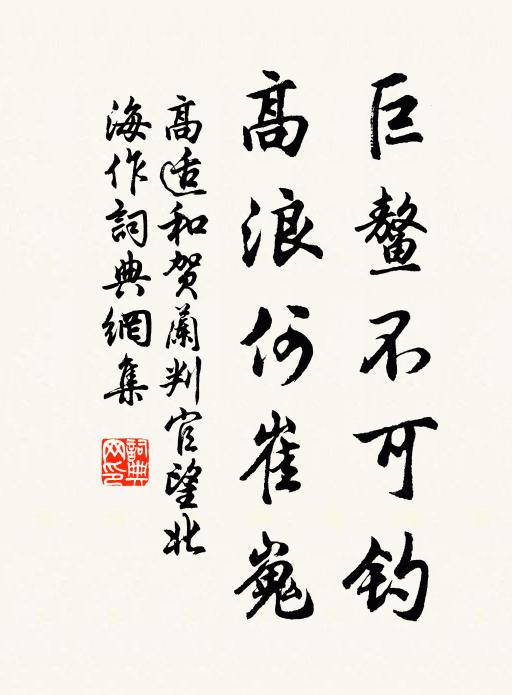 巨鳌不可钓
高浪何崔嵬
高适和贺蘭判官望北
海作詞典網集
詞典
网印